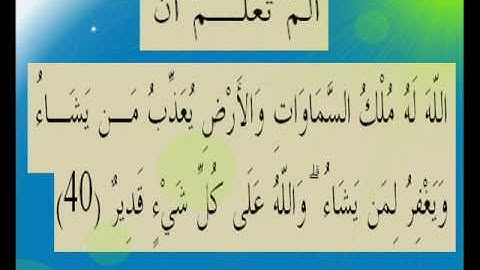 الَم تَعْلَـــم أَن
اللّهَ لَهُ مُلْكُ السَّمَاوَاتِ وَالأَرْضِ يُعَذِّبُ مَـــن يَشَـــاءُ
وَيَغْفِرُ لِمَن يَشَاءُ ۗ وَاللّهُ عَلَى كُلِّ شَيْءٍ قَدِيرٌ (40)